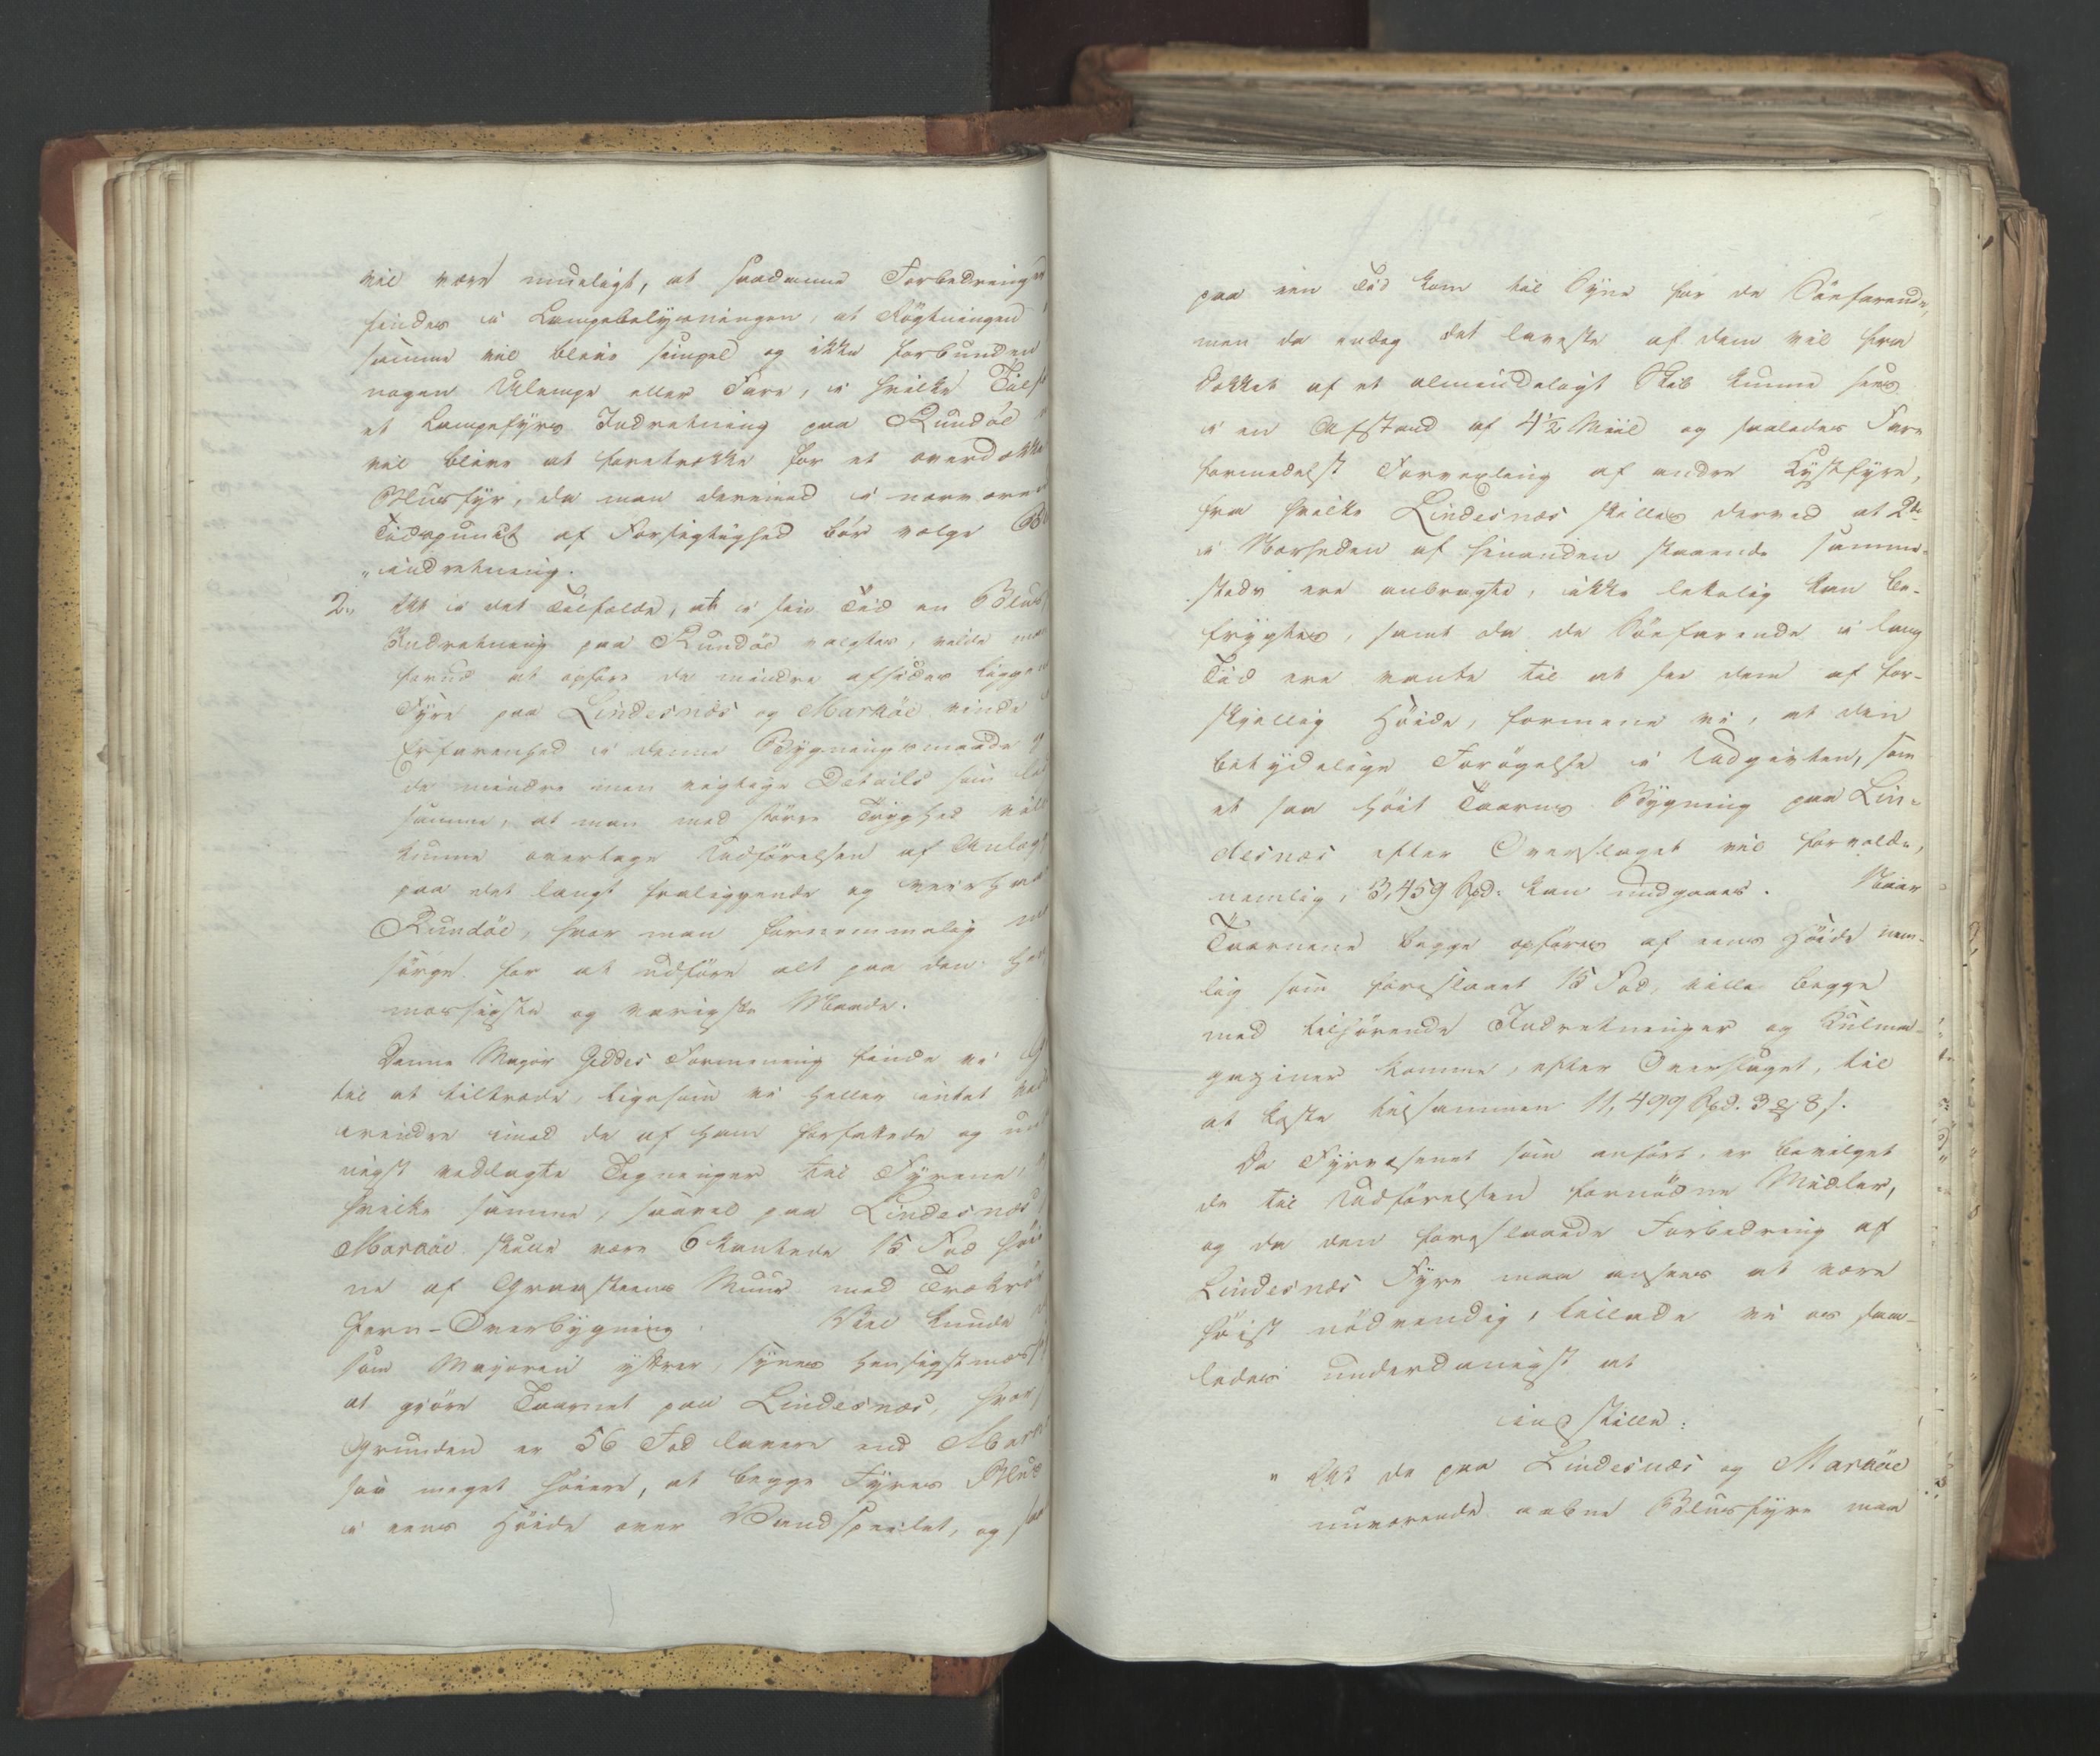 vil være mueligt, at saadanne Forbedring
findes i Lampebelysningen, at Røgtningen
samme vil blive simpel og ikke forbunden
nogen Ulempe eller Fare, i hvilke
et Lampefyrs Indretning paa Rundöe
vil blive at foretrække for et overdække
Blusfyr, da man derimod i nærværen
Tidspunct af Forsigtighed bör vælge
"indretning.
2., At i det Tilfælde, at i sin Tid en Blus
Indretning paa Rundöe valgtes, vilde man
forud at opføre de mindre afsides liggen
Fyre paa Lindesnæs og Marköe vinde
Erfarenhed i denne Bygningsmaade
de mindre men vigtige Details som
samme, at man med större Tryghed vil
kunne overtage Udförelsen af Anlæg
paa det langt fraliggende og
Rundöe, hvor man fornemmelig
sörge for at udföre alt paa den
mæssigste og varigste Maade.
Denne Major Geddes Formening finde vi
til at tiltræde, ligesom vi heller intet
erindre imod de af ham forfattede og
nigst vedlagte Tegninger til Fyrene,
hvilke samme, saavel paa Lindesnæs
Marköe skulle være 6 kantede 15 Fod höi
ne af Graasteens Muur med
Jern-Overbygning. Vel kunde
som Majoren yttrer, synes hensigtmæs
at giöre Taarnet paa Lindesnæs, hvor
Grunden er 56 Fod lavere end Mark
saa meget höiere, at begge Fyres Blus
i eens Höide over Vandspeilet, og saa
paa een Tid kom til Syne for de Söefarende,
men da endog det laveste af dem vil fra
Dækket af et almindeligt Skib kunne sees
i en Afstand af 4½ Miil og saaledes Fare
formedelst Forvexling af andre Kystfyre,
fra hvilke Lindesnæs skilles derved at 2de
i Nærheden af hinanden staaende samme-
steds ere anbragte, ikke lettelig kan be-
frygtes, samt da de Söefarende i lang
Tid ere vante til at see dem af for-
skjellig Höide, formene vi, at den
betydelige Forögelse i Udgivten, som
et saa höit Taarns Bygning paa Lin-
desnæs efter Overslaget vil forvolde,
nemlig, 3,459 Rbd. kan undgaaes. Naar
Taarnene begge opföres af eens Höide nem-
lig som foreslaaet 15 Fod, ville begge
med tilhörende Indretninger og Kulma-
gaziner komme, efter Overslaget, til
at koste tilsammen 11,499 Rbd. 3 ₰ 8 s.
Da Fyrvæsenet som anfört, er bevilget
de til Udförelsen fornödne Midler,
og da den foreslaaede Forbedring af
Lindesnæs Fyre maa ansees at være
höist nödvendig, tillade vi os saa-
ledes underdanigst at
indstille:
" At de paa Lindesnæs og Marköe
nuværende aabne Blusfyre maa